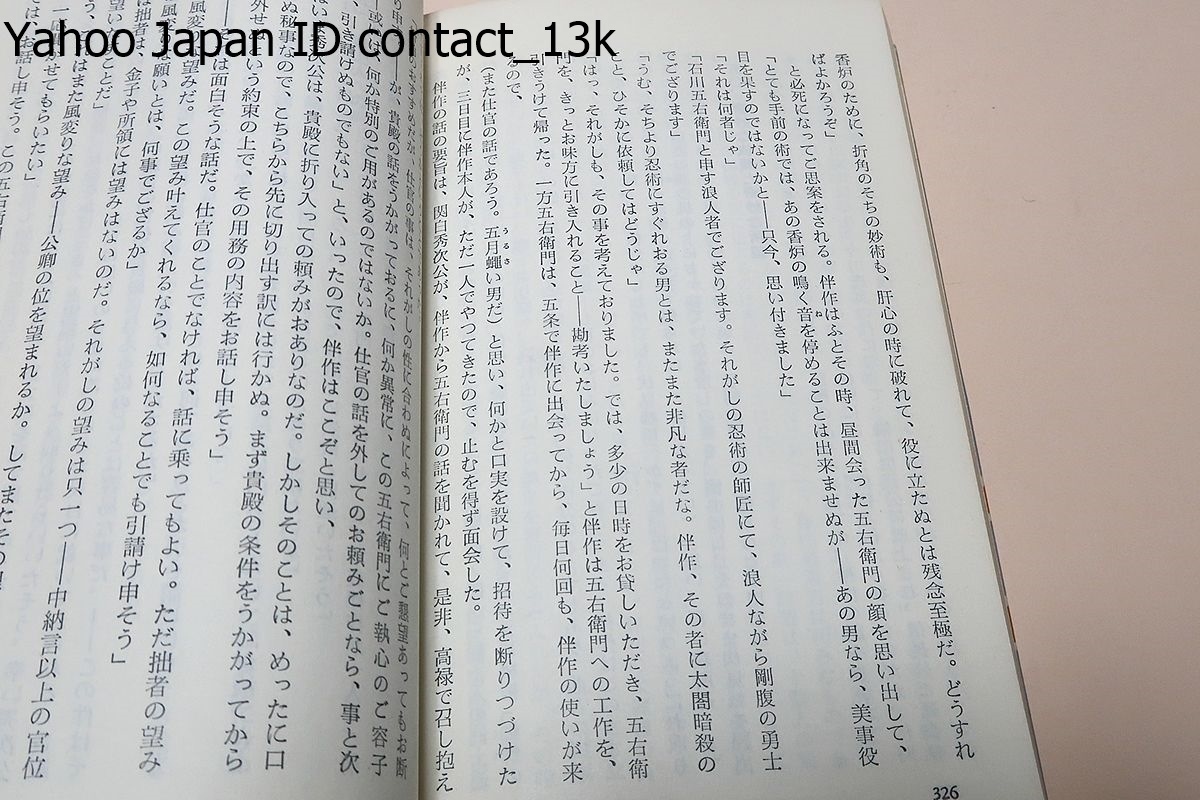 Yahoo Japan ID contact_13k
香炉のために、折角のそちの妙術も、肝心の時に破れて、役に立たぬとは残念至極だ。どうすれ
ばよかろうぞ」
と必死になってご思案をされる。伴作はふとその時、昼間会った五右衛門の顔を思い出して、
「とても手前の術では、あの香炉の鳴く音を停めることは出来ませぬが――あの男なら、美事役
目を果すのではないかと――只今、思い付きました」
「それは何者じゃ」
「石川五右衛門と申す浪人者でござります。それがしの忍術の師匠にて、浪人ながら剛腹の勇士
でござります」
「うむ、そちより忍術にすぐれおる男とは、またまた非凡な者だな。伴作、その者に太閤暗殺の
こと、ひそかに依頼してはどうじゃ」
「はっ、それがしも、その事を考えておりました。では、多少の日時をお貸しいただき、五右衛
門を、きっとお味方に引き入れること――勘考いたしましょう」と伴作は五右衛門への工作を、
引きうけて帰った。一方五右衛門は、五条で伴作に出会ってから、毎日何回も、伴作の使いが来
るので、
（また仕官の話であろう。五月蠅い男だ）と思い、何かと口実を設けて、招待を断りつづけた
が、三日目に伴作本人が、ただ一人でやってきたので、止むを得ず面会した。
伴作の話の要旨は、関白秀次公が、伴作から五右衛門の話を聞かれて、是非、高禄で召し抱え
326
のおすすめだが、仕官の事は、それがしの性に合わぬによって、何とご懇望あってもお断
り申
が、貴殿の話をうかがっておるに、何か異常に、この五右衛門にご執心のご容子
――或は、何か特別のご用があるのではないか。仕官の話を外してのお頼みごとなら、事と次
引き請けぬものでもない」と、いったので、伴作はここぞと思い、
秀次公は、貴殿に折り入っての頼みがおありなのだ。しかしそのことは、めったに口
ぬ秘事なので、こちらから先に切り出す訳には行かぬ。まず貴殿の条件をうかがってから
外せ
という約束の上で、その用務の内容をお話し申そう」
は面白そうな話だ。仕官のことでなければ、話に乗ってもよい。ただ拙者の望み
風変
望みだ。この望み叶えてくれるなら、如何なることでも引請け申そう」
願いとは、何事でござるか」
拙者は、金子や所領には望みはないのだ。それがしの望みは只一つ――中納言以上の官位
かせてもらいたい」
はまた風変りな望み――公卿の位を望まれるか。してまたその
お話し申そう。この五右衛門